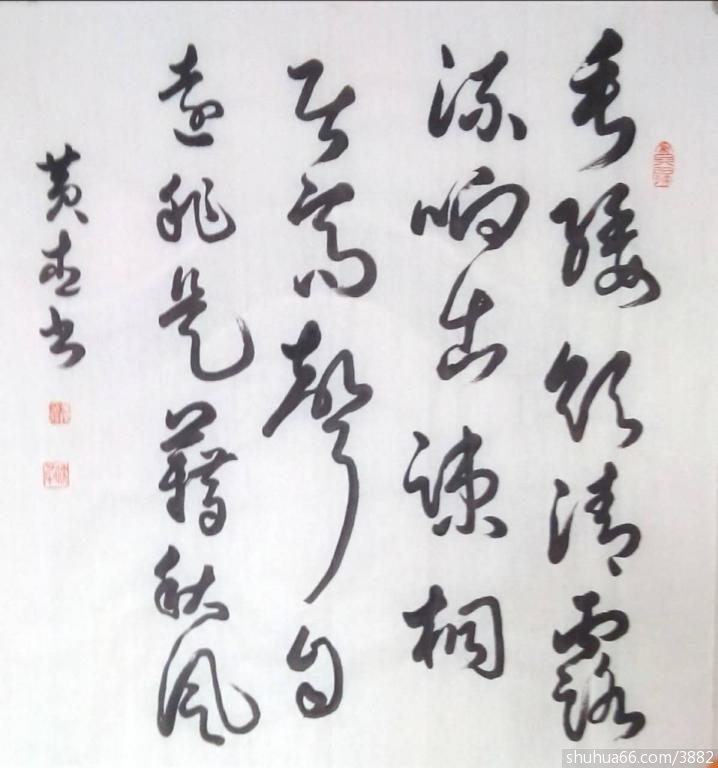 垂緌飲清露
流响出疎桐
居高聲自
遠非是藉秋風
黄 书
shuhua66.com/3882